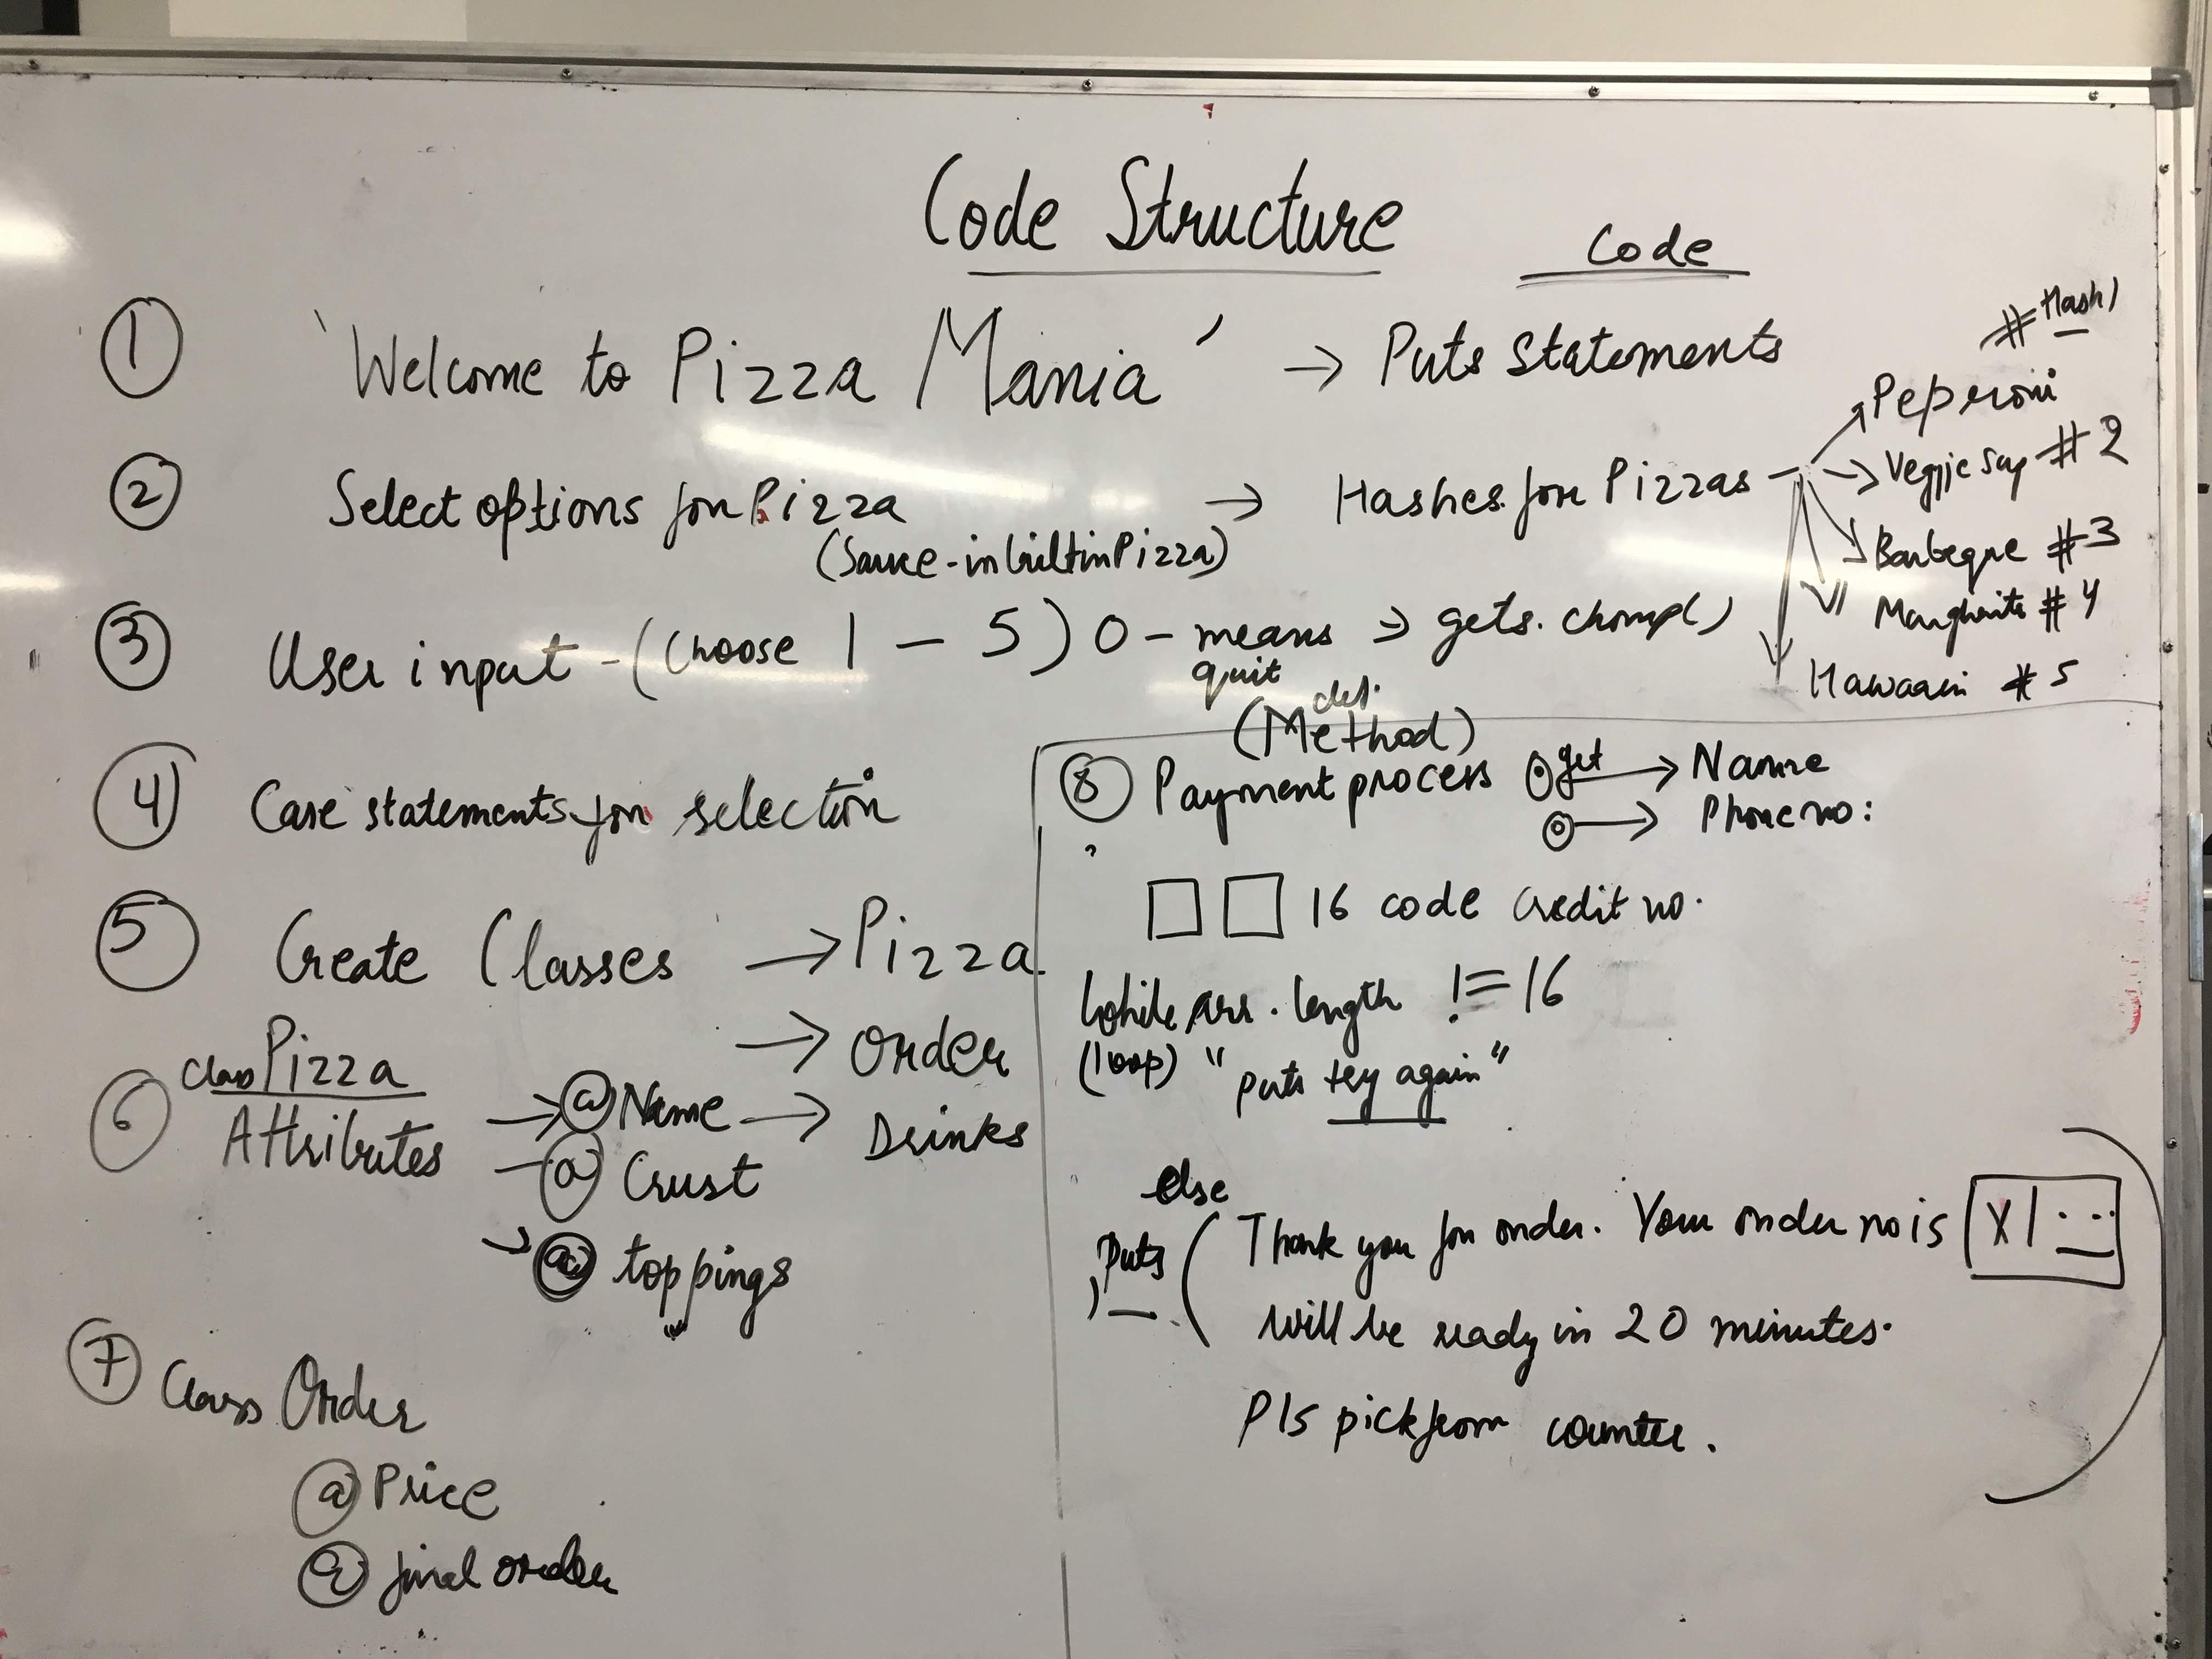 Code Structure
Code
① 'Welcome to Pizza Mania' → Puts Statements
# Hash1
Peperoni
② Select options for Pizza → Hashes for Pizzas → Veggie Sup #2
(Sauce-inbuiltinPizza)
Barbeque #3
Margharita #4
③ User input - (Choose 1 - 5) 0 - means → gets.chomp()
quit
Hawaain #5
④ Case statements for selection
⑤ Create Classes → Pizza
→ Order
→ Drinks
Class Pizza
⑥ Attributes → @ Name
@ Crust
→ @ toppings
⑦ Class Order
@ Price
@ final order
def.
(Method)
⑧ Payment process get → Name
→ Phone no:
16 code credit no.
While arr.length != 16
(loop) "puts try again"
else
Puts ( Thank you for order. Your order no is X1
will be ready in 20 minutes.
Pls pick from counter.